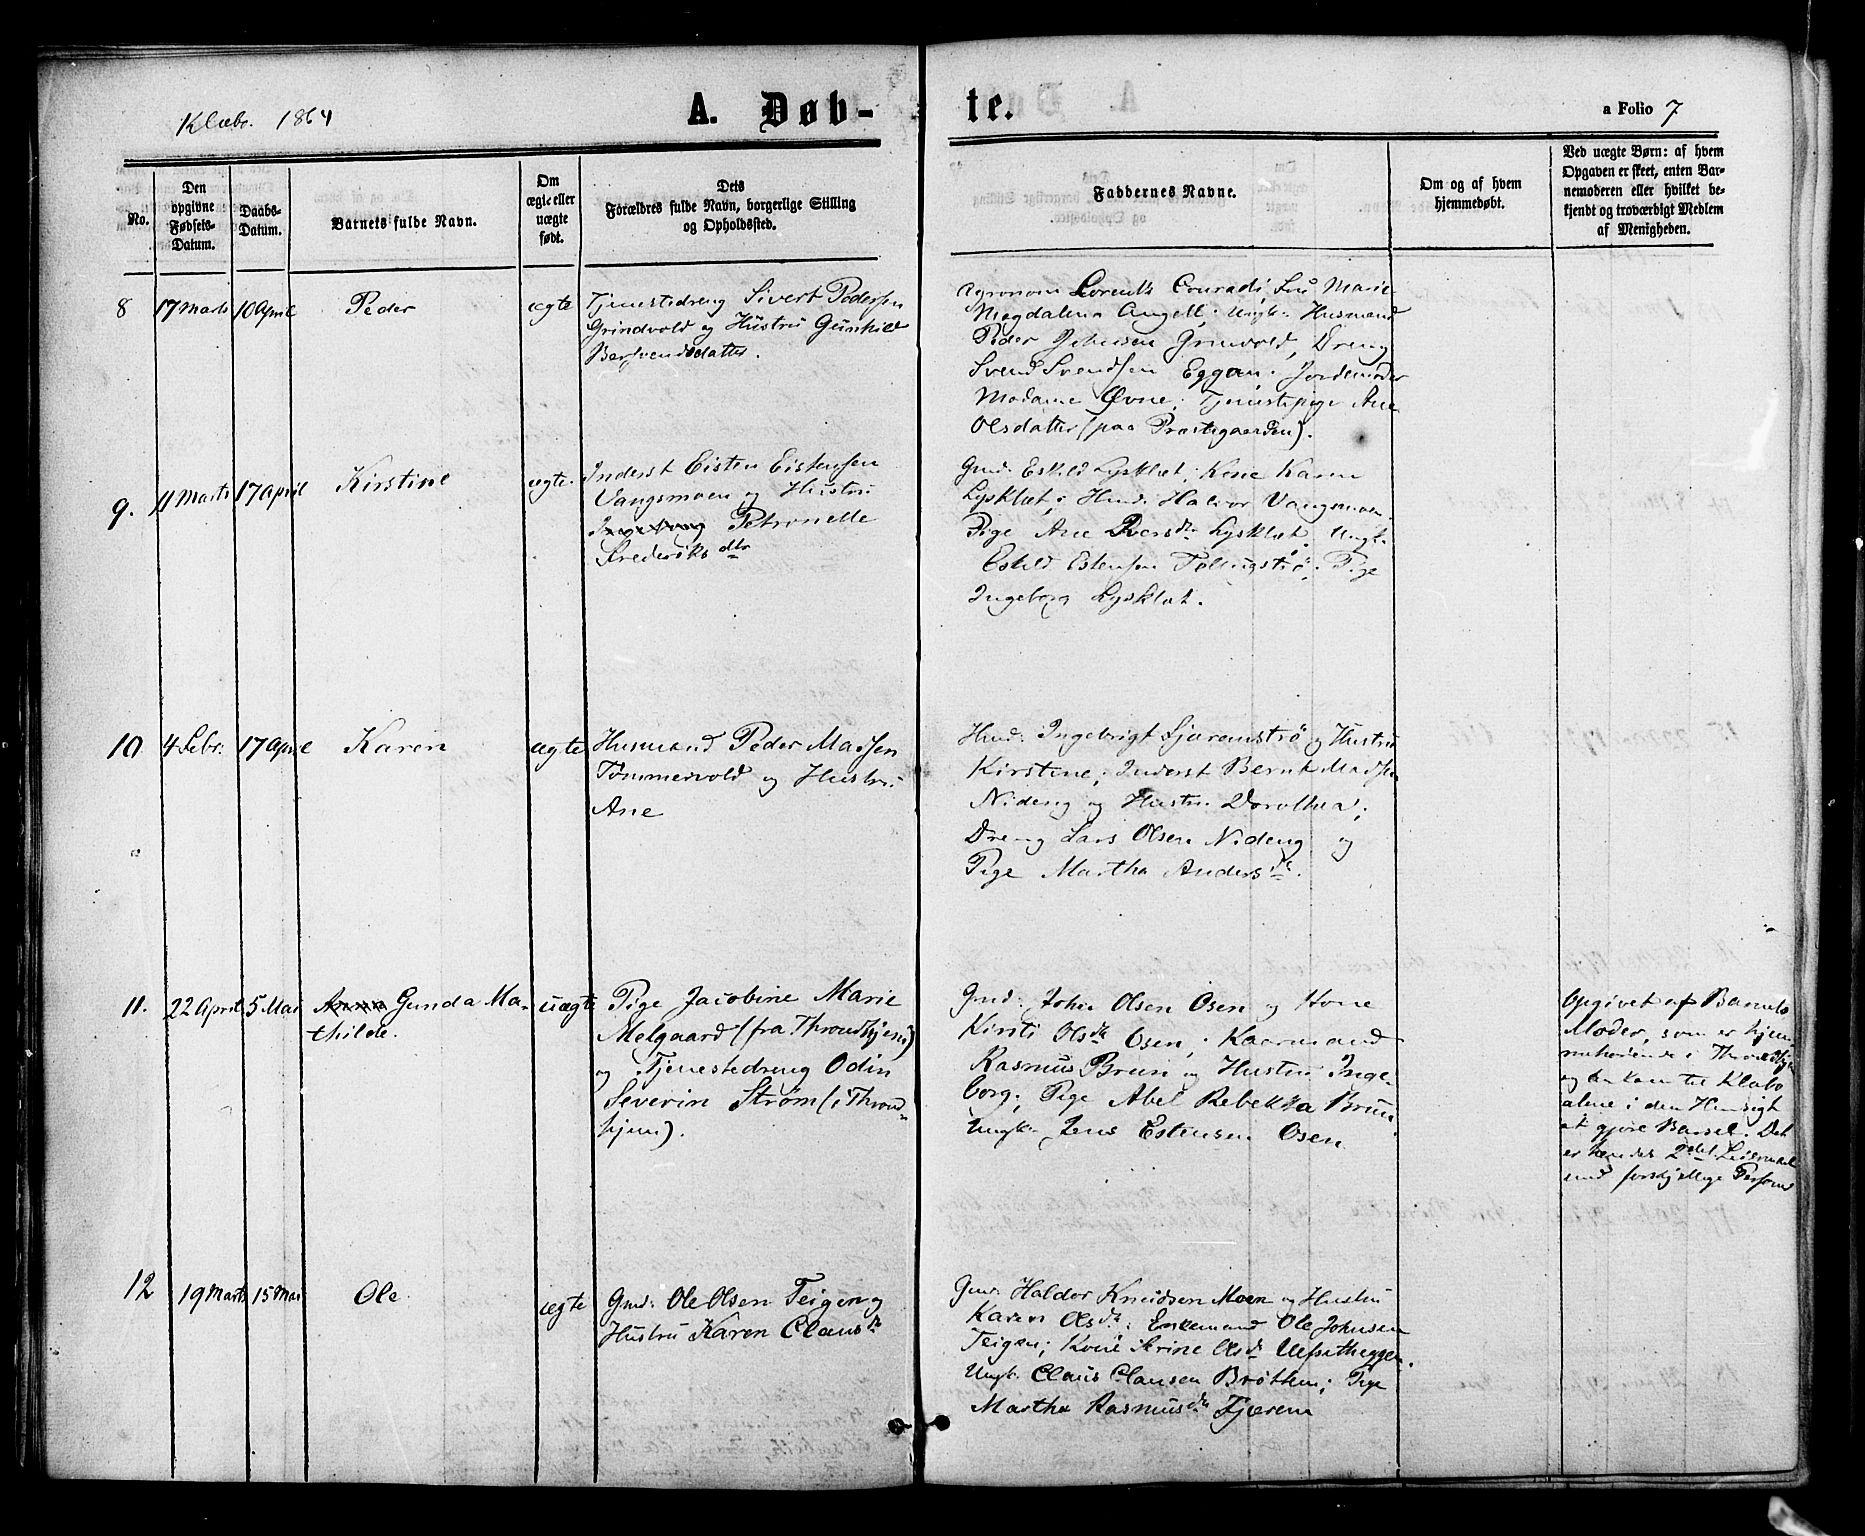 Klæbo. 1864
A. Døb-
te.
a Folio 7
No.
Den
opgivne
Fødsels-
Datum.
Daabs-
Datum.
Barnets fulde Navn.
Om
ægte eller
uægte
født.
Dets
Forældres fulde Navn, borgerlige Stilling
og Opholdssted.
Faddernes Navne.
Om og af hvem
hjemmedøbt.
Ved uægte Børn: af hvem
Opgaven er skeet, enten Bar-
nemoderen eller hvilket be-
kjendt og troværdigt Medlem
af Menigheden.
8 17 Marts 10 April Peder ægte
Tjenestedreng Sivert Pedersen
Grindvold og Hustru Gunhild
Bersvendsdatter.
Agronom Lorents Conradi, Marie
Magdalena Angell; Ungk. Husmand
Peder Grinvold, Dreng
Svend Svendsen Eggan; Jordemoder
Madame Øvne; Tjenestepige Ane
Olsdatter (paa Præstegaarden).
9. 11 Marts 17 April Kirstine ægte.
Inderst Eisten Eistensen
Vangsmoen og Hustru
Ingeborg Petronelle
Frederiks dtr
Gmd. Eskild Lysklæt; Kone Karen
Lysklæt; Hmd. Halvor Vangsmoen.
Pige Ane Iversdtr Lysklæt. Ungk.
Eskild Estensen Tellugstrø; Pige
Ingeborg Lysklæt.
10. 4 Febr: 17 April Karen ægte
Husmand Peder Madsen
Tømmervold og Hustru
Ane
Hmd: Ingebrigt Fjæremstrø og Hustru
Kirstine; Inderst Bernt Madsen
Nideng og Hustru Dorothea;
Dreng Lars Olsen Nideng og
Pige Martha Andersdtr.
11. 22 April 5 Mai Anna Gunda Ma-
thilde.
uægte
Pige Jacobine Marie
Melgaard (fra Throndhjem)
og Tjenestedreng Odin
Severin Strøm (i Thrond-
hjem).
Gmd: John Olsen Osen og Kone
Kirsti Olsdtr Osen; Kaarmand
Rasmus Brun og Hustru Inge-
borg; Pige Abel Rebekka Bruun
Ungk. Jens Estensen Osen
Opgivet af Barnets
Moder, som er hjem-
mehørende i Throndhjem
og kom til Klæbo
alene i den Hensigt
at gjøre Barsel. Det
er hendes 2det Leiermaal
med forskjellige Personer
12 19 Marts 15 Mai Ole. ægte
Gmd: Ole Olsen Teigen og
Hustru Karen Clausdtr
Gmd: Haldor Knudsen Moen og Hustru
Karen Olsdtr; Enkemand Ole Johnsen
Teigen; Kone Serine Olsdtr Ulfsetheggen.
Ungk. Claus Clausen Brøttem; Pige
Martha Rasmusdtr Fjærem